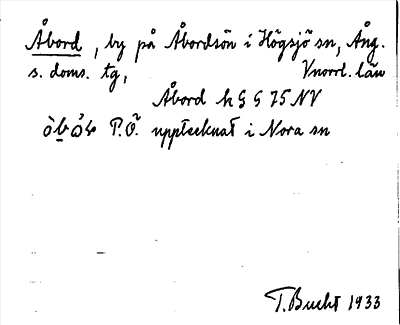 Åbord, by på Åbordsön i Högsjö sn, Ång.
s. doms. tg, Vnorrl. län
Åbord h § § 75 NV
P.Ö. upptecknat i Nora sn
T. Bucht 1933